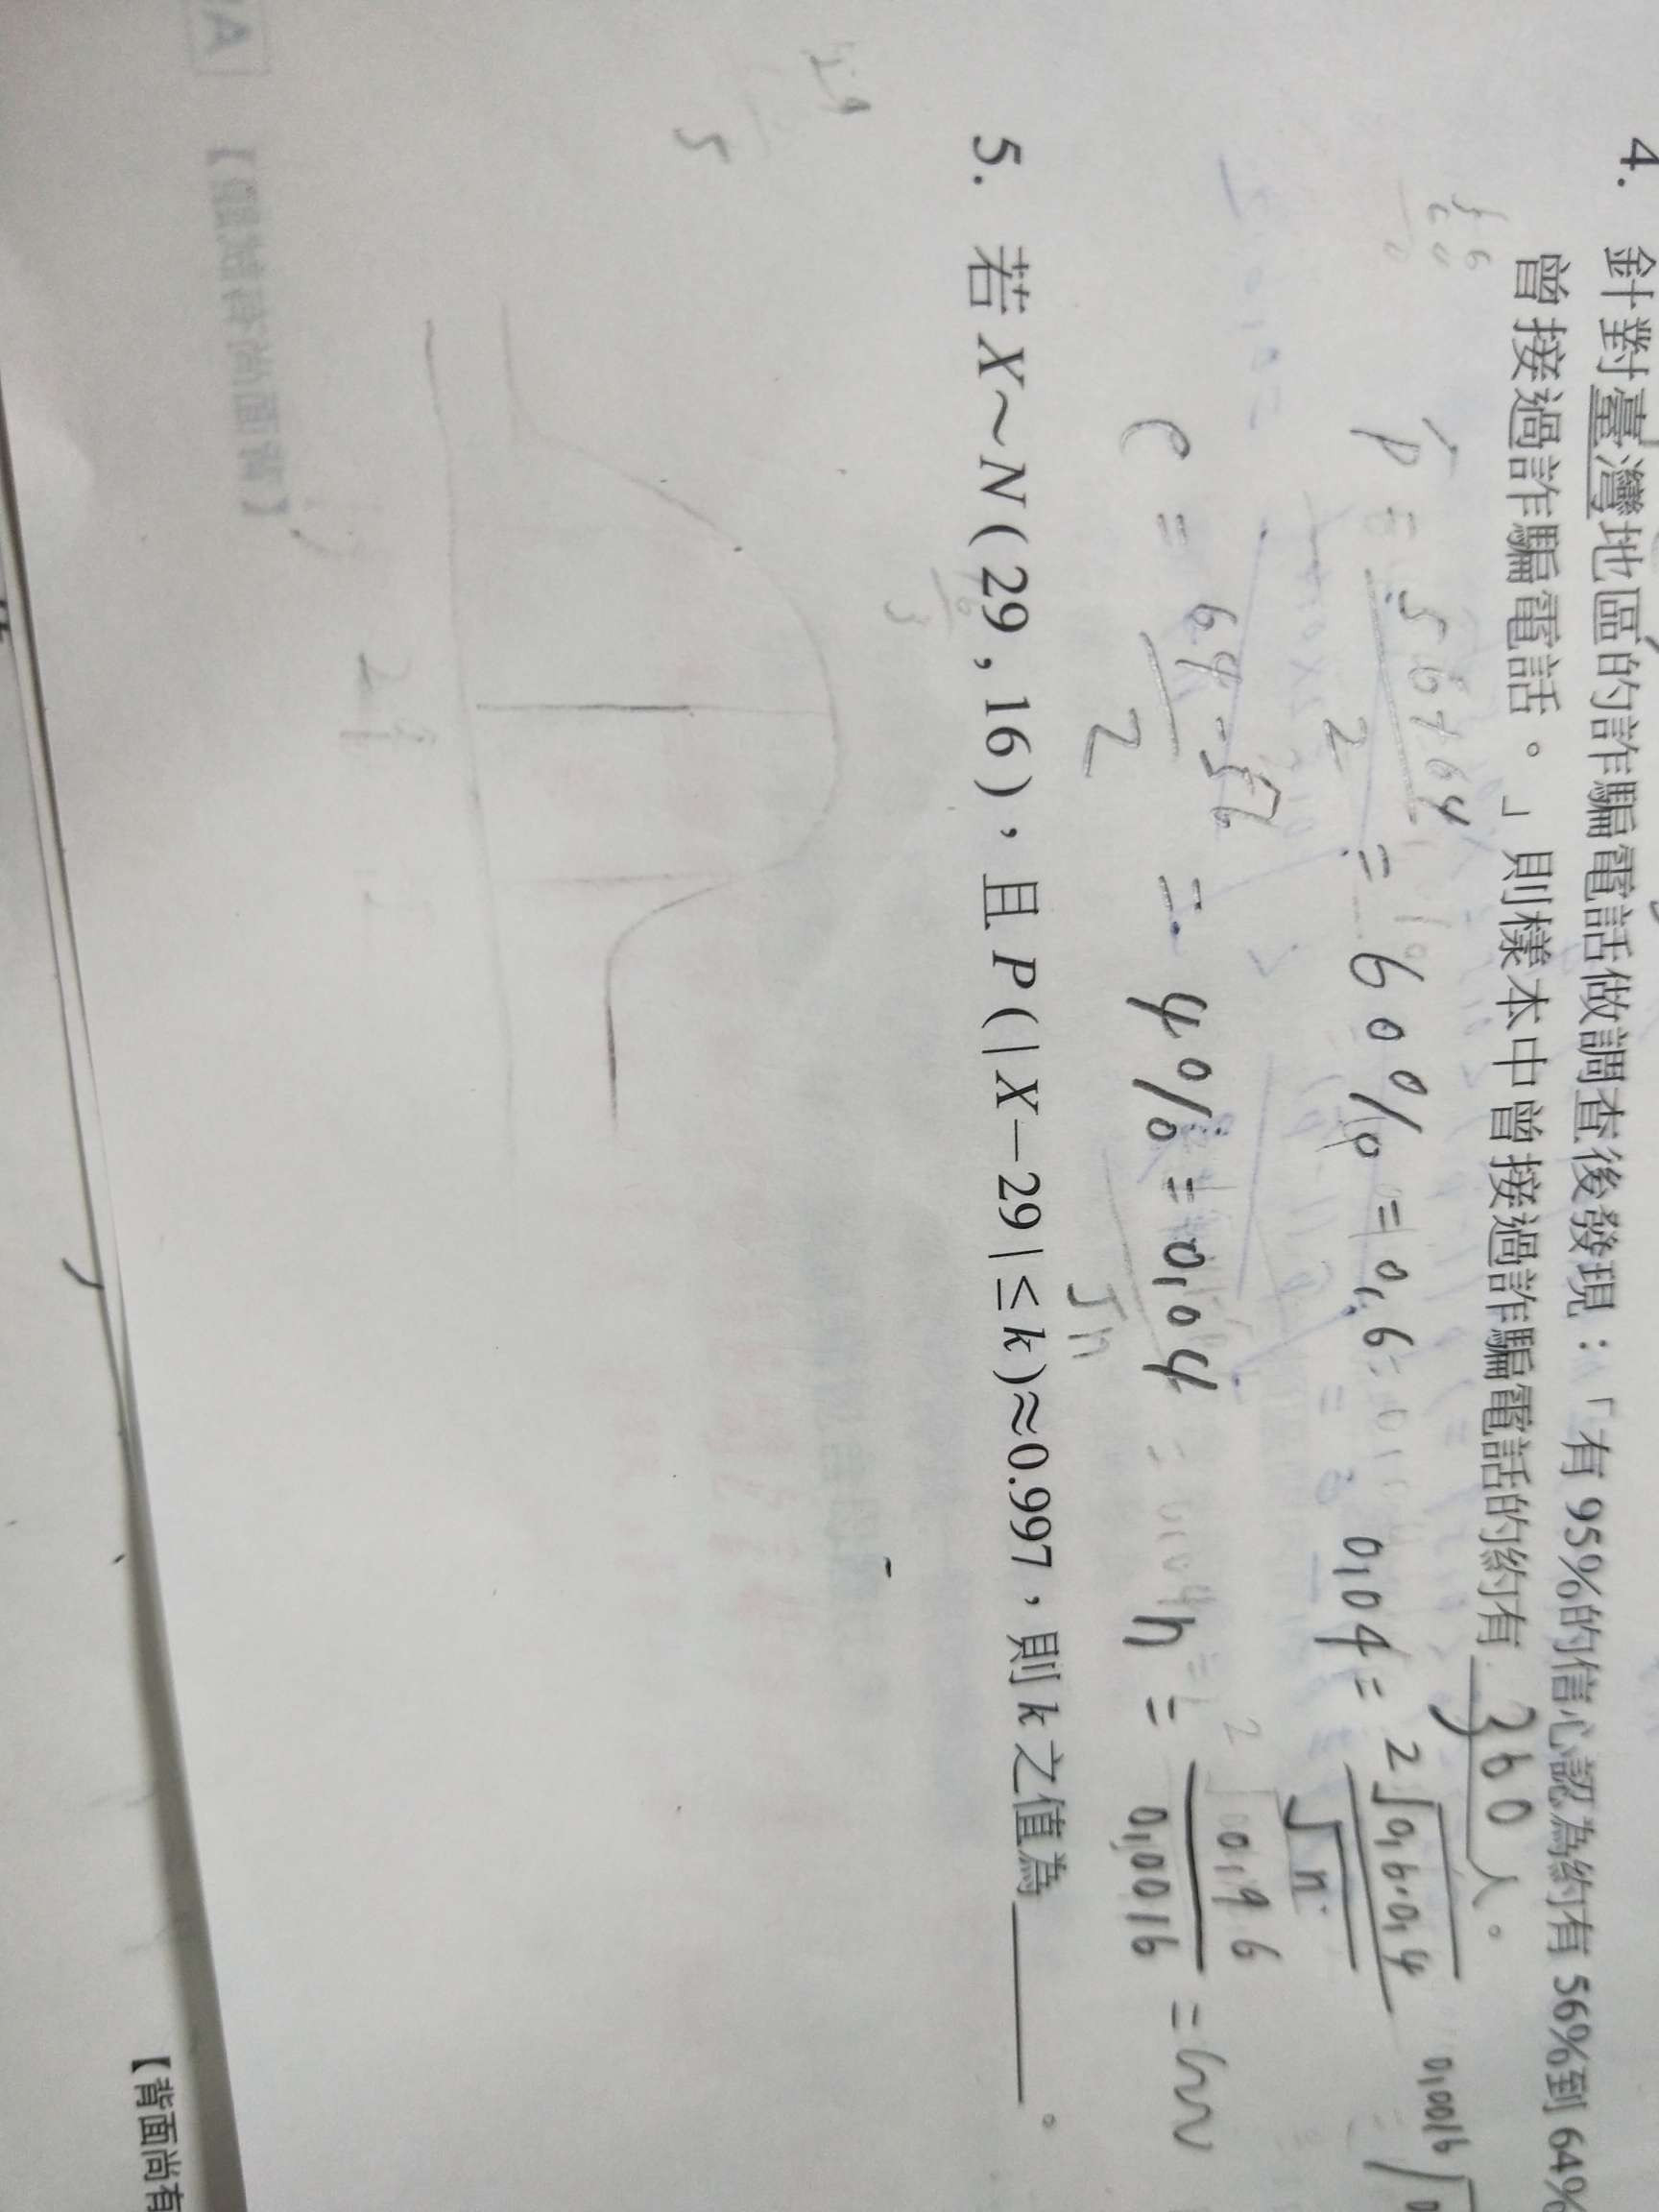 4. 針對臺灣地區的詐騙電話做調查後發現:「有 95%的信心認為約有 56%到 64%
曾接過詐騙電話。」則樣本中曾接過詐騙電話的約有 360 人。
p̂ = 56+64 / 2 = 60% = 0,6 0,04 = 2√0,6·0,4 / √n
e = 64-56 / 2 = 4% = 0,04 n = 0,96 / 0,0016 =
0,0016
5. 若 X~N(29,16),且 P(|X-29|≤k)≈0.997,則 k 之值為 ______。
√n
29
5
【背面尚有